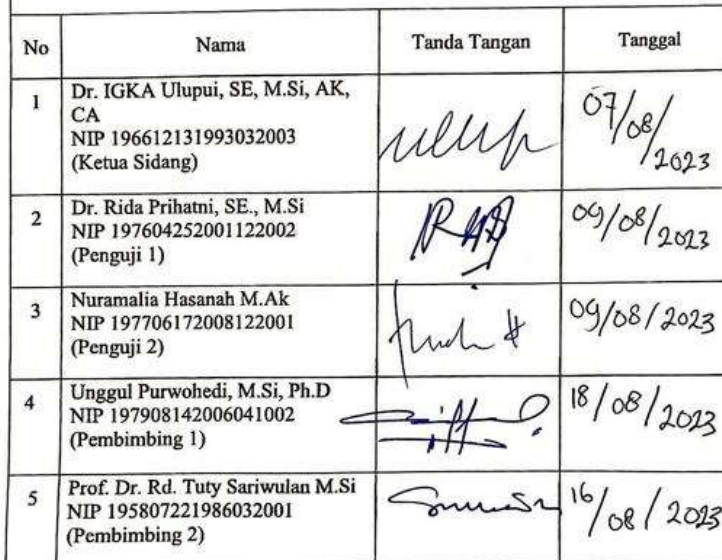 No Nama Tanda Tangan Tanggal
1 Dr. IGKA Ulupui, SE, M.Si, AK,
CA
NIP 196612131993032003
(Ketua Sidang)
07/08/2023
2 Dr. Rida Prihatni, SE., M.Si
NIP 197604252001122002
(Penguji 1)
09/08/2023
3 Nuramalia Hasanah M.Ak
NIP 197706172008122001
(Penguji 2)
09/08/2023
4 Unggul Purwohedi, M.Si, Ph.D
NIP 197908142006041002
(Pembimbing 1)
18/08/2023
5 Prof. Dr. Rd. Tuty Sariwulan M.Si
NIP 195807221986032001
(Pembimbing 2)
16/08/2023